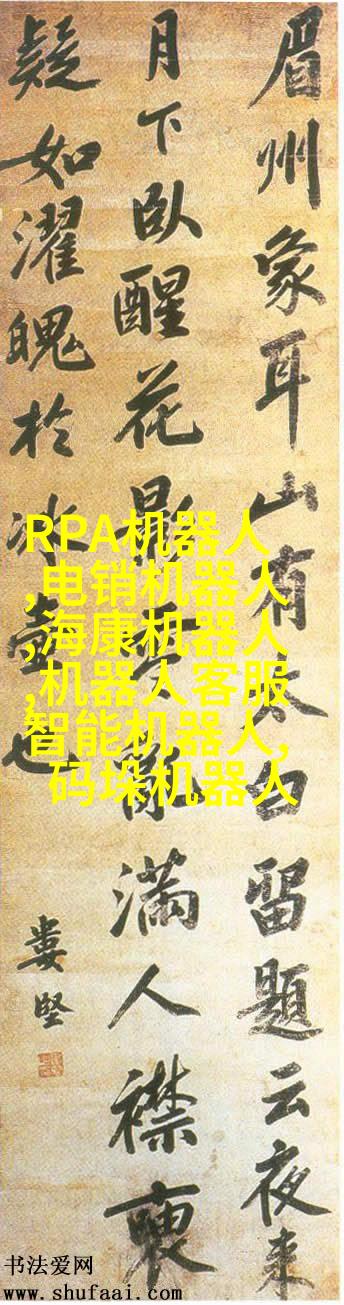 眉州象耳山有太白留題云夜来
月下臥醒花影亂滿人襟
疑如濯魄於冰壺也
婁堅
RPA机器人
,电销机器人
,海康机器人
,机器人客服
智能机器人,
码垛机器人
书法爱网
www.shufaai.com